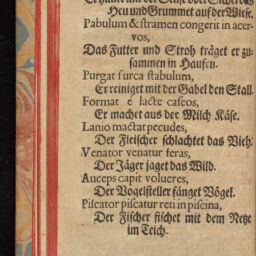 Heu und Grummet auf der Wiese.
Pabulum & stramen congerit in acer-
vos,
Das Futter und Stroh träget er zu-
sammen in Haufen.
Purgat furca stabulum,
Er reiniget mit der Gabel den Stall.
Format è lacte caseos,
Er machet aus der Milch Käse.
Lanio mactat pecudes,
Der Fleischer schlachtet das Vieh.
Venator venatur feras,
Der Jäger jaget das Wild.
Auceps capit volucres,
Der Vogelsteller fänget Vögel.
Piscator piscatur reti in piscina,
Der Fischer fischet mit dem Netze
im Teich.